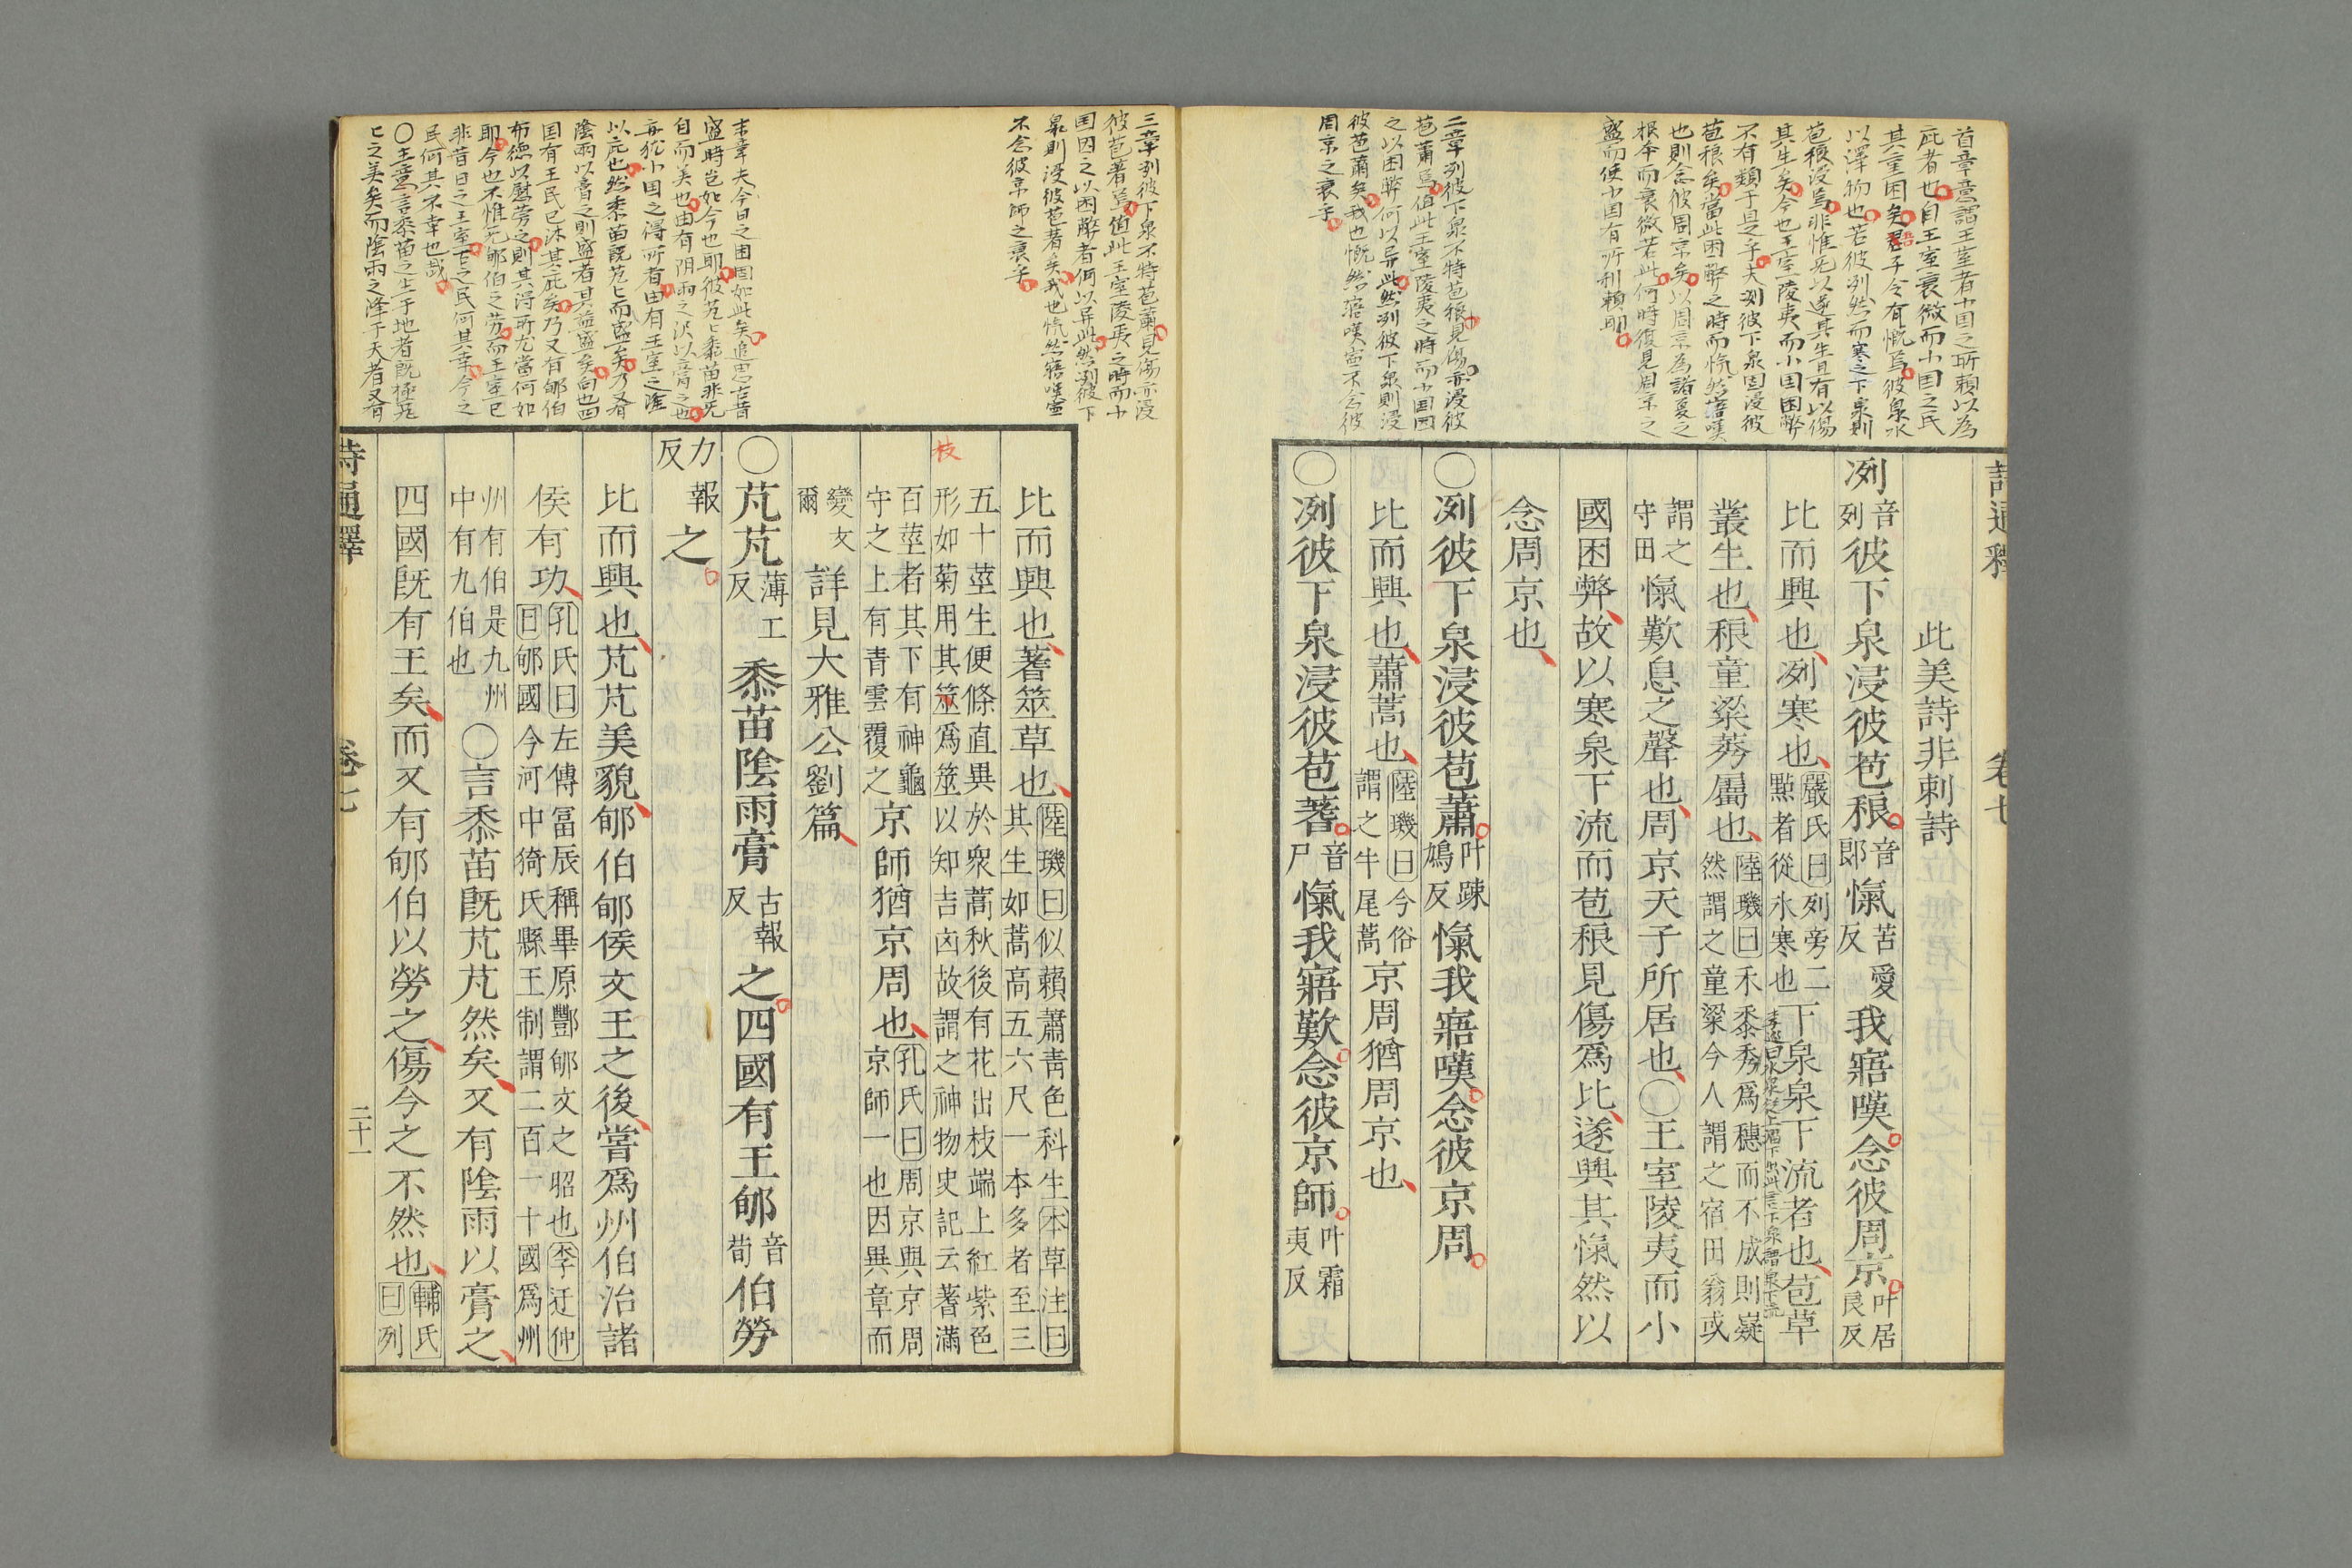 首章意謂王室者小国之所賴以為
庇者也自王室衰微而小国之民
其重困矣君子今有慨焉彼泉水
以澤物也若彼冽然而寒之下泉則
苞稂浸焉非惟无以遂其生且有以傷
其生矣今也王室陵夷而小国困弊
不有類于是乎夫冽彼下泉固浸彼
苞稂矣當此困弊之時而愾然寤嘆
也則念彼周京矣以周京為諸夏之
根本而衰微若此何時復見周京之
盛而使小国有所利賴耶
二章冽彼下泉不特苞稂見傷亦浸彼
苞蕭焉值此王室陵夷之時而小国因
之以困弊何以异此然冽彼下泉則浸
彼苞蕭矣我也慨然寤嘆寧不念彼
周京之衰乎
詩通釋 卷七
此美詩非刺詩
冽音列彼下泉浸彼苞稂音郎愾苦愛反我寤嘆念彼周京叶居良反
比而興也冽寒也嚴氏曰列旁二點者從氷寒也下泉泉下流者也苞草
叢生也稂童粱莠屬也陸璣曰禾黍秀爲穗而不成則嶷然謂之童粱今人謂之宿田翁或
謂之守田愾歎息之聲也周京天子所居也〇王室陵夷而小
國困弊故以寒泉下流而苞稂見傷爲比遂興其愾然以
念周京也
〇冽彼下泉浸彼苞蕭叶疎鳩反愾我寤嘆念彼京周
比而興也蕭蒿也陸璣曰今俗謂之牛尾蒿京周猶周京也
〇冽彼下泉浸彼苞蓍音尸愾我寤歎念彼京師叶霜夷反
三章冽彼下泉不特苞蕭見傷亦浸
彼苞蓍焉值此王室陵夷之時而小
国因之以困弊者何以异此然冽彼下
泉則浸彼苞蓍矣我也慨然寤嘆寧
不念彼京師之衰乎
末章夫今日之困固如此矣追思古昔
盛時豈如今也耶彼芃匕黍苗非无
自而美也由有阴雨之沢以膏之也
亦犹小国之得所者由有王室之陰
以庇也然黍苗既芃匕而盛矣乃又有
陰雨以膏之則盛者其益盛矣向也四
国有王民已沐其庇矣乃又有郇伯
布德以慰劳之則其得所尤當何如
耶今也不惟无郇伯之劳而王室已
非昔日之王室古之民何其幸今之
民何其不幸也哉
〇主意言黍苗之生于地者既極芃
匕之美矣而陰雨之泽于天者又有
枝
比而興也蓍筮草也陸璣曰似賴蕭青色科生本草注曰其生如蒿高五六尺一本多者至三
五十莖生便條直異於衆蒿秋後有花出枝端上紅紫色形如菊用其筮爲筮以知吉凶故謂之神物史記云蓍滿
百莖者其下有神龜守之上有青雲覆之京師猶京周也孔氏曰周京與京周京師一也因異章而
變文爾詳見大雅公劉篇
〇芃芃薄工反黍苗陰雨膏古報反之四國有王郇音荀伯勞
力報反之
比而興也芃芃美貌郇伯郇侯文王之後嘗爲州伯治諸
侯有功孔氏曰左傳冨辰稱畢原酆郇文之昭也李迂仲曰郇國今河中猗氏縣王制謂二百一十國爲州
州有伯是九州中有九伯也〇言黍苗旣芃芃然矣又有陰雨以膏之
四國旣有王矣而又有郇伯以勞之傷今之不然也輔氏曰列
詩通釋 卷七 二十一